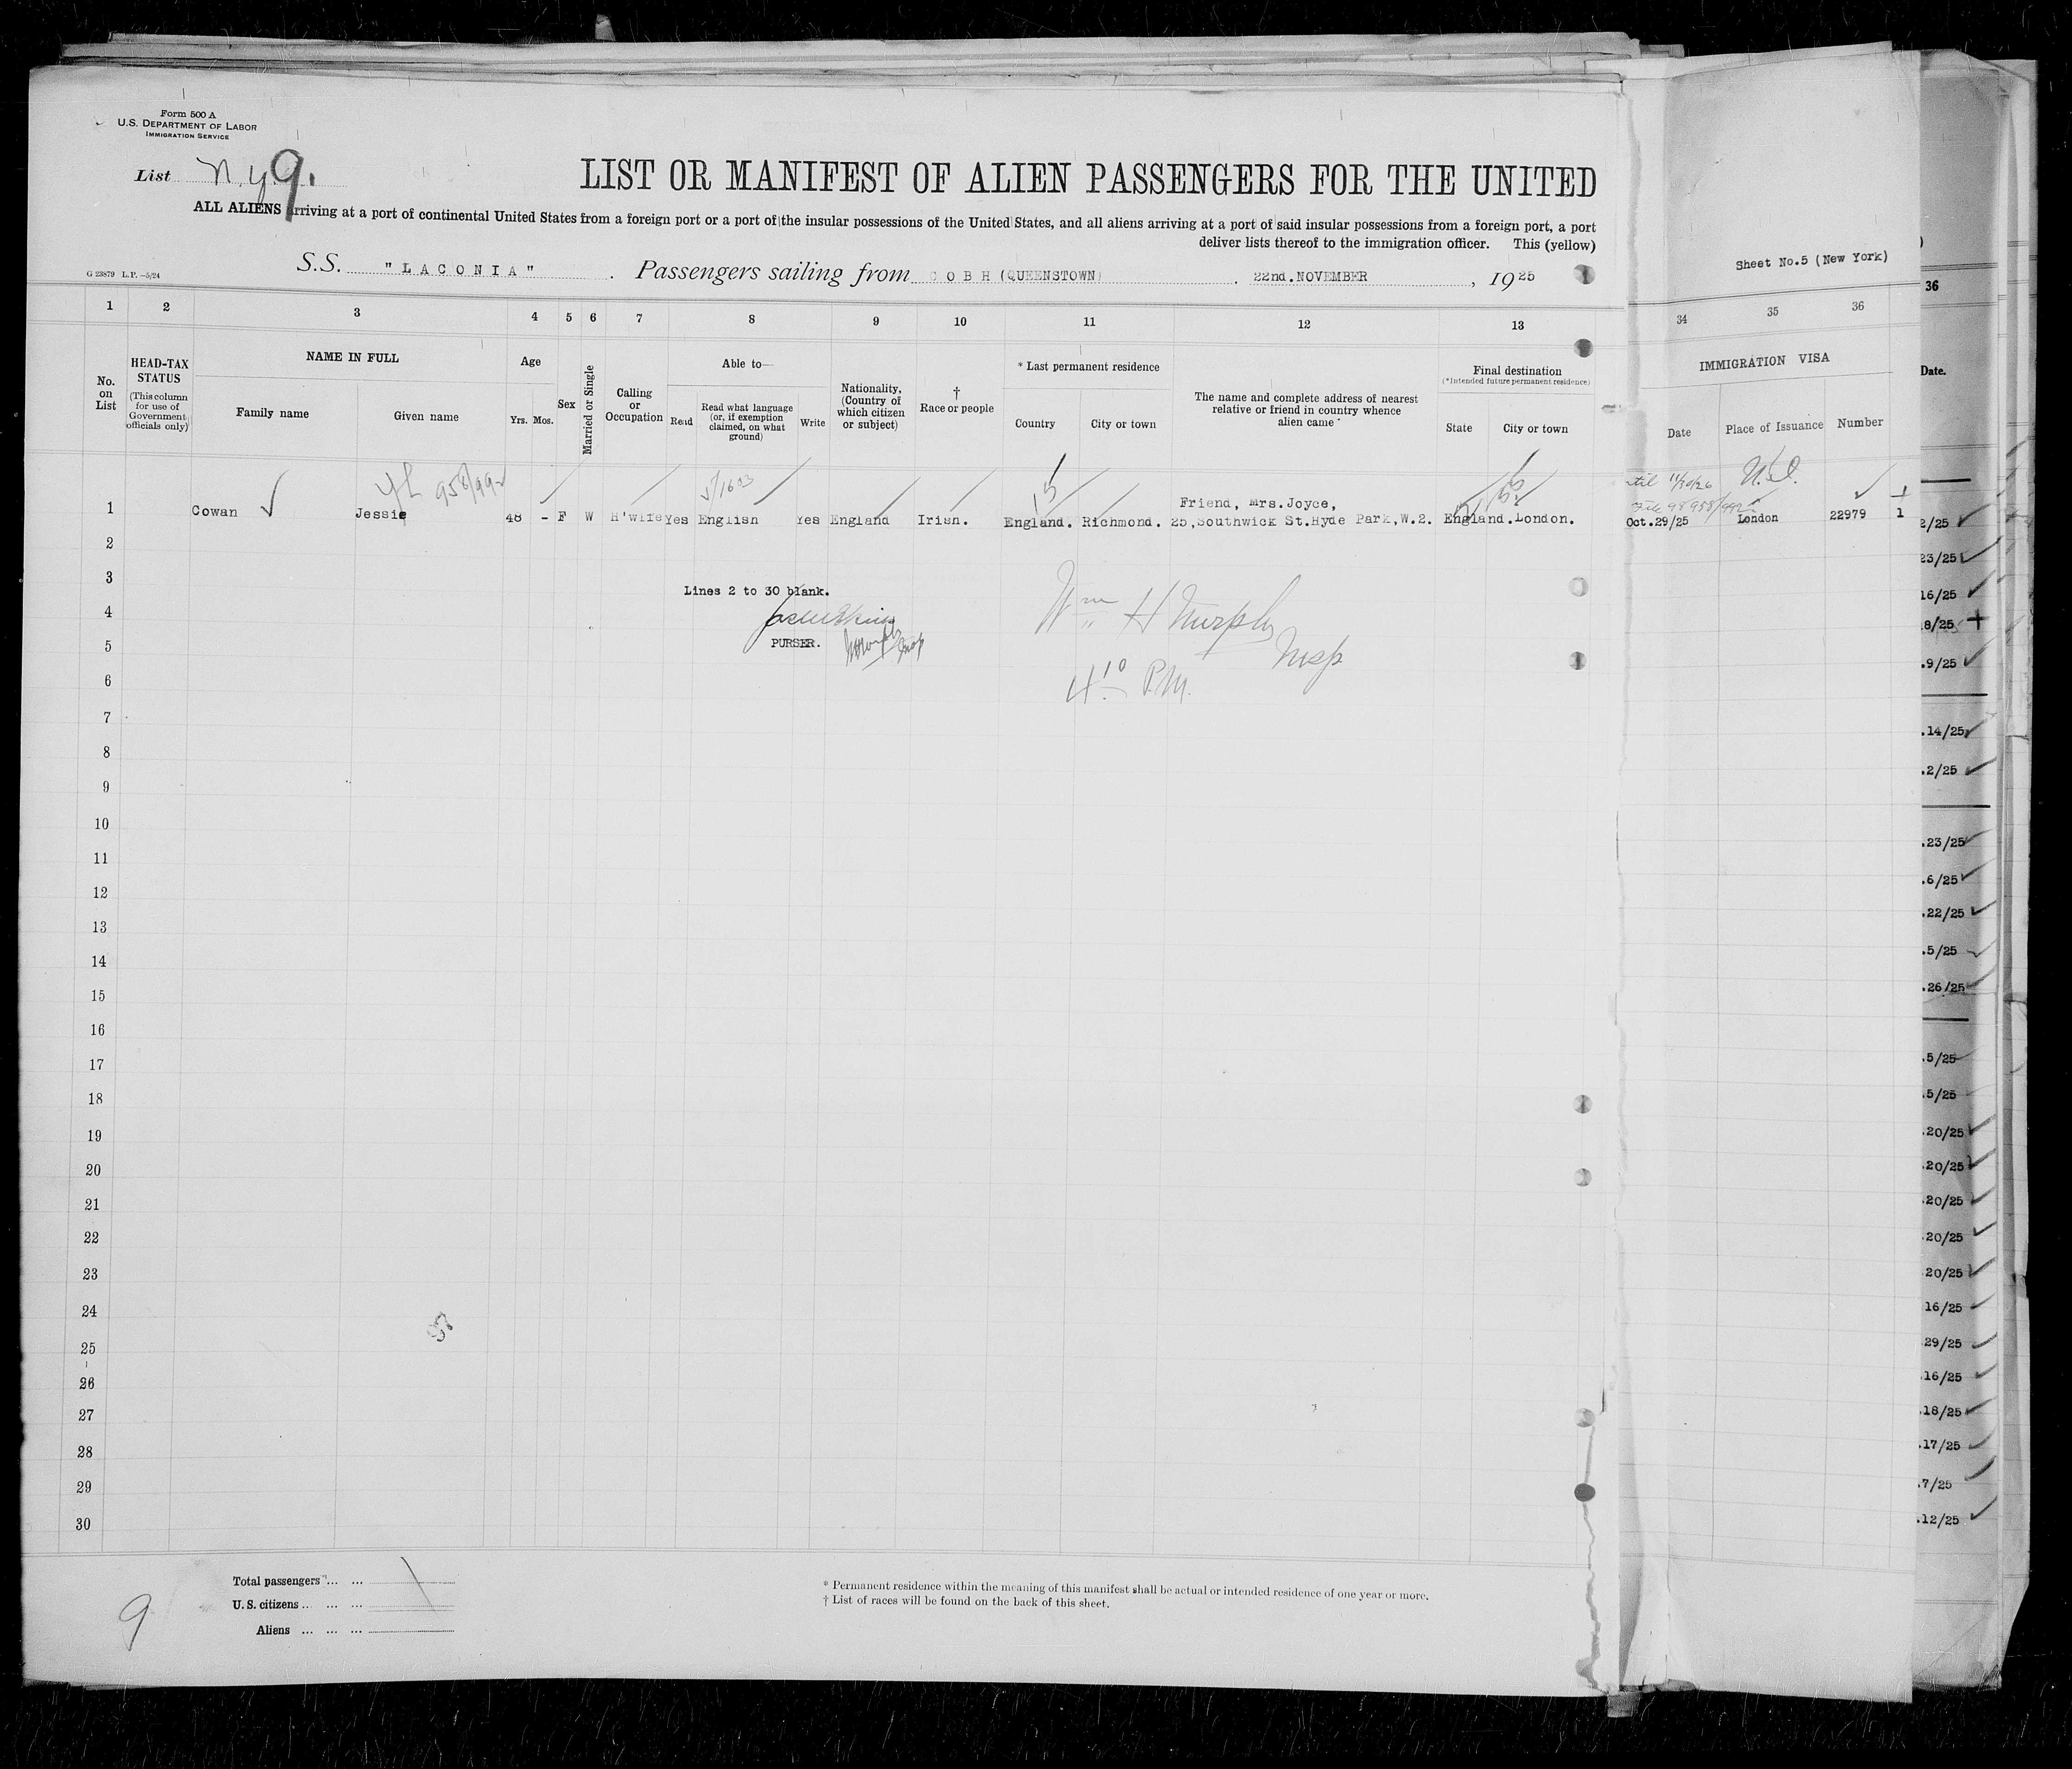 Form 500 A
U.S. DEPARTMENT OF LABOR
IMMIGRATION SERVICE
List N.Y. 9.
LIST OR MANIFEST OF ALIEN PASSENGERS FOR THE UNITED
ALL ALIENS arriving at a port of continental United States from a foreign port or a port of the insular possessions of the United States, and all aliens arriving at a port of said insular possessions from a foreign port, a port
deliver lists thereof to the immigration officer. This (yellow)
G 23879 L.P.—5/24
S.S. "LACONIA". Passengers sailing from COBH (QUEENSTOWN). 22nd. NOVEMBER, 1925
Sheet No.5 (New York)
36
1 2 3 4 5 6 7 8 9 10 11 12 13 34 35 36
No. on List
HEAD-TAX STATUS
(This column for use of Government officials only)
NAME IN FULL
Family name
Given name
Age
Yrs. Mos.
Sex
Married or Single
Calling or Occupation
Able to—
Read
Read what language (or, if exemption claimed, on what ground)
Write
Nationality, (Country of which citizen or subject)
† Race or people
* Last permanent residence
Country
City or town
The name and complete address of nearest relative or friend in country whence alien came
Final destination
(*Intended future permanent residence)
State
City or town
IMMIGRATION VISA
Date
Place of Issuance
Number
Date.
4/2 958/992
5/1693
until 11/30/26
File 98958/992
1 Cowan Jessie 48 - F W H'wife Yes English Yes England Irish. England. Richmond. Friend, Mrs.Joyce,
25,Southwick St.Hyde Park,W.2. England.London. Oct.29/25 London 22979 1
2
3
Lines 2 to 30 blank.
4
Wm H Murphy
5
PURSER.
Insp
6
4:10 P.M.
7
8
9
10
11
12
13
14
15
16
17
18
19
20
21
22
23
24
25
26
27
28
29
30
2/25
23/25
16/25
8/25
.9/25
.14/25
.2/25
.23/25
.6/25
.22/25
.5/25
.26/25
.5/25
.5/25
.20/25
.20/25
.20/25
.20/25
.20/25
16/25
29/25
.16/25
.18/25
.17/25
.7/25
.12/25
Total passengers ... ... 1
U. S. citizens ... ... ...
Aliens ... ... ...
9
* Permanent residence within the meaning of this manifest shall be actual or intended residence of one year or more.
† List of races will be found on the back of this sheet.